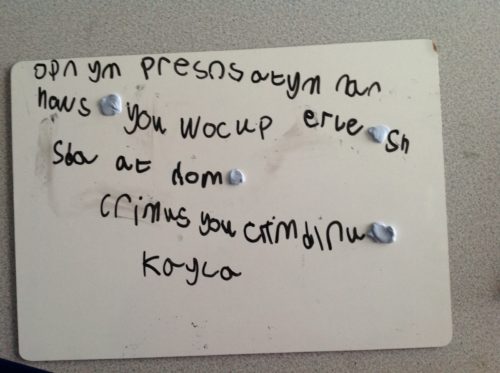 opn ym presns atym nan
haus you wocup erve sh
Sta at hom
crimus you crimdinu
Kayla